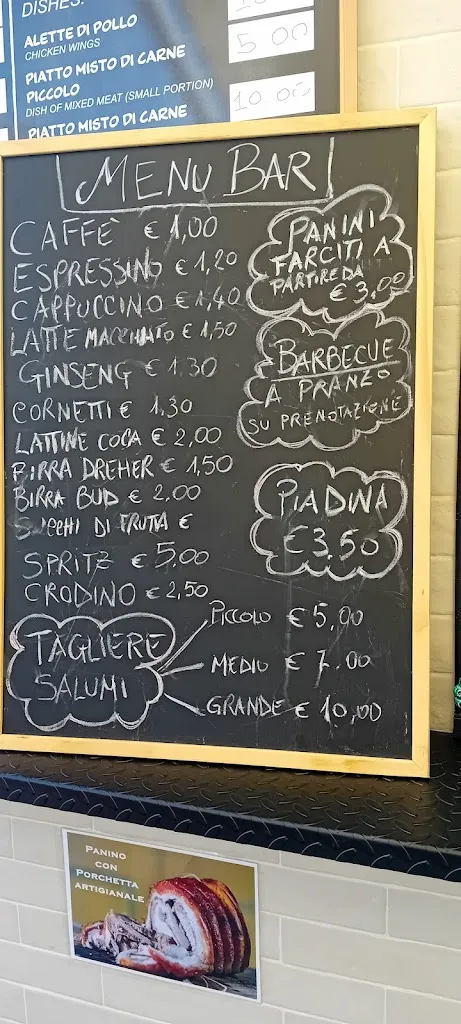 DISHES:
ALETTE DI POLLO
CHICKEN WINGS
5 00
PIATTO MISTO DI CARNE
PICCOLO
DISH OF MIXED MEAT (SMALL PORTION)
10.00
PIATTO MISTO DI CARNE
MENU BAR
CAFFÈ € 1,00
ESPRESSINO € 1,20
CAPPUCCINO € 1,40
LATTE MACCHIATO € 1,50
GINSENG € 1.30
CORNETTI € 1,30
LATTINE COCA € 2,00
BIRRA DREHER € 1,50
BIRRA BUD € 2.00
SUCCHI DI FRUTTA €
SPRITZ € 5.00
CRODINO € 2,50
PANINI
FARCITI A
PARTIRE DA
€ 3,00
BARBECUE
A PRANZO
SU PRENOTAZIONE
PIADINA
€ 3.50
TAGLIERE
SALUMI
PICCOLO € 5,00
MEDIO € 7.00
GRANDE € 10,00
PANINO
CON
PORCHETTA
ARTIGIANALE